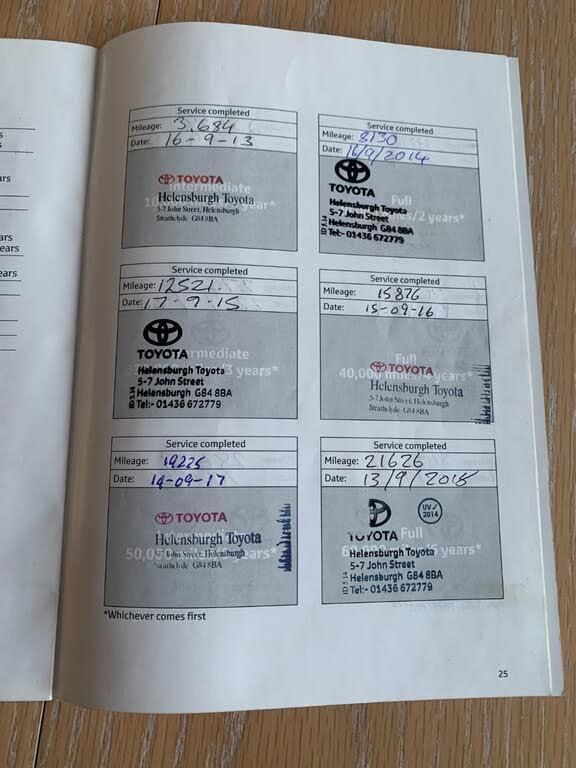 Service completed
Mileage: 3,684
Date: 16-9-13
Intermediate
TOYOTA
Helensburgh Toyota
5-7 John Street, Helensburgh
Strathclyde G84 8BA
Service completed
Mileage: 8130
Date: 16/9/2014
Full
TOYOTA
Helensburgh Toyota
miles/2 years*
5-7 John Street
Helensburgh G84 8BA
Tel:- 01436 672779
ID 5.14
Service completed
Mileage: 12521.
Date: 17-9-15
TOYOTA
Intermediate
Helensburgh Toyota
/3 years*
5-7 John Street
Helensburgh G84 8BA
Tel:- 01436 672779
ID 5.14
Service completed
Mileage: 15876
Date: 15-09-16
Full
TOYOTA
40,000 miles/4 years*
Helensburgh Toyota
5-7 John Street, Helensburgh
Strathclyde G84 8BA
Service completed
Mileage: 19225
Date: 14-09-17
TOYOTA
Helensburgh Toyota
50,000
years*
5-7 John Street, Helensburgh
Strathclyde G84 8BA
Service completed
Mileage: 21626
Date: 13/9/2018
UV✓
2014
TOYOTA
Full
Helensburgh Toyota
years*
5-7 John Street
Helensburgh G84 8BA
Tel:- 01436 672779
ID 5.14
*Whichever comes first
25